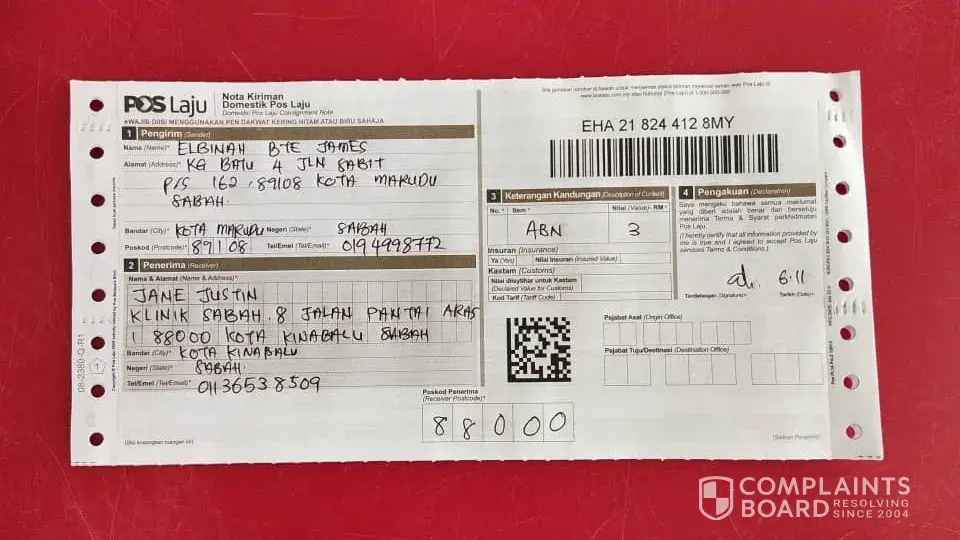 POS Laju
Nota Kiriman
Domestik Pos Laju
Domestic Pos Laju Consignment Note
*WAJIB DIISI MENGGUNAKAN PEN DAKWAT KERING HITAM ATAU BIRU SAHAJA
1 Pengirim (Sender)
Nama (Name)* ELBINAH BTE JAMES
Alamat (Address)* KG BATU 4 JLN SABIT
P/S 162, 89108 KOTA MARUDU
SABAH.
Bandar (City)* KOTA MARUDU Negeri (State)* SABAH
Poskod (Postcode)* 89108 Tel/Emel (Tel/Email)* 0194998772
2 Penerima (Receiver)
Nama & Alamat (Name & Address)*
JANE JUSTIN
KLINIK SABAH. 8 JALAN PANTAI ARAS
1 88000 KOTA KINABALU SABAH
Bandar (City)* KOTA KINABALU
Negeri (State)* SABAH.
Tel/Emel (Tel/Email)* 01136538509
(Sila kosongkan ruangan ini)
Poskod Penerima
(Receiver Postcode)*
88000
EHA 21 824 412 8MY
3 Keterangan Kandungan (Description of Content)
No.* Item* Nilai (Value)- RM*
ABN 3
Insuran (Insurance)
Ya (Yes) Nilai Insuran (Insured Value)
Kastam (Customs)
Nilai diisytihar untuk Kastam
(Declared Value for Customs)
Kod Tarif (Tariff Code)
4 Pengakuan (Declaration)
Saya mengaku bahawa semua maklumat
yang diberi adalah benar dan bersetuju
menerima Terma & Syarat perkhidmatan
Pos Laju.
(I hereby certify that all information provided by
me is true and I agree to accept Pos Laju
services Terms & Conditions.)
6.11
Tandatangan (Signature)* Tarikh (Date)*
Pejabat Asal (Origin Office)
Pejabat Tuju/Destinasi (Destination Office)
(Salinan Pengirim)
08-2380-Q-R1
1
COMPLAINTS
BOARD RESOLVING
SINCE 2004